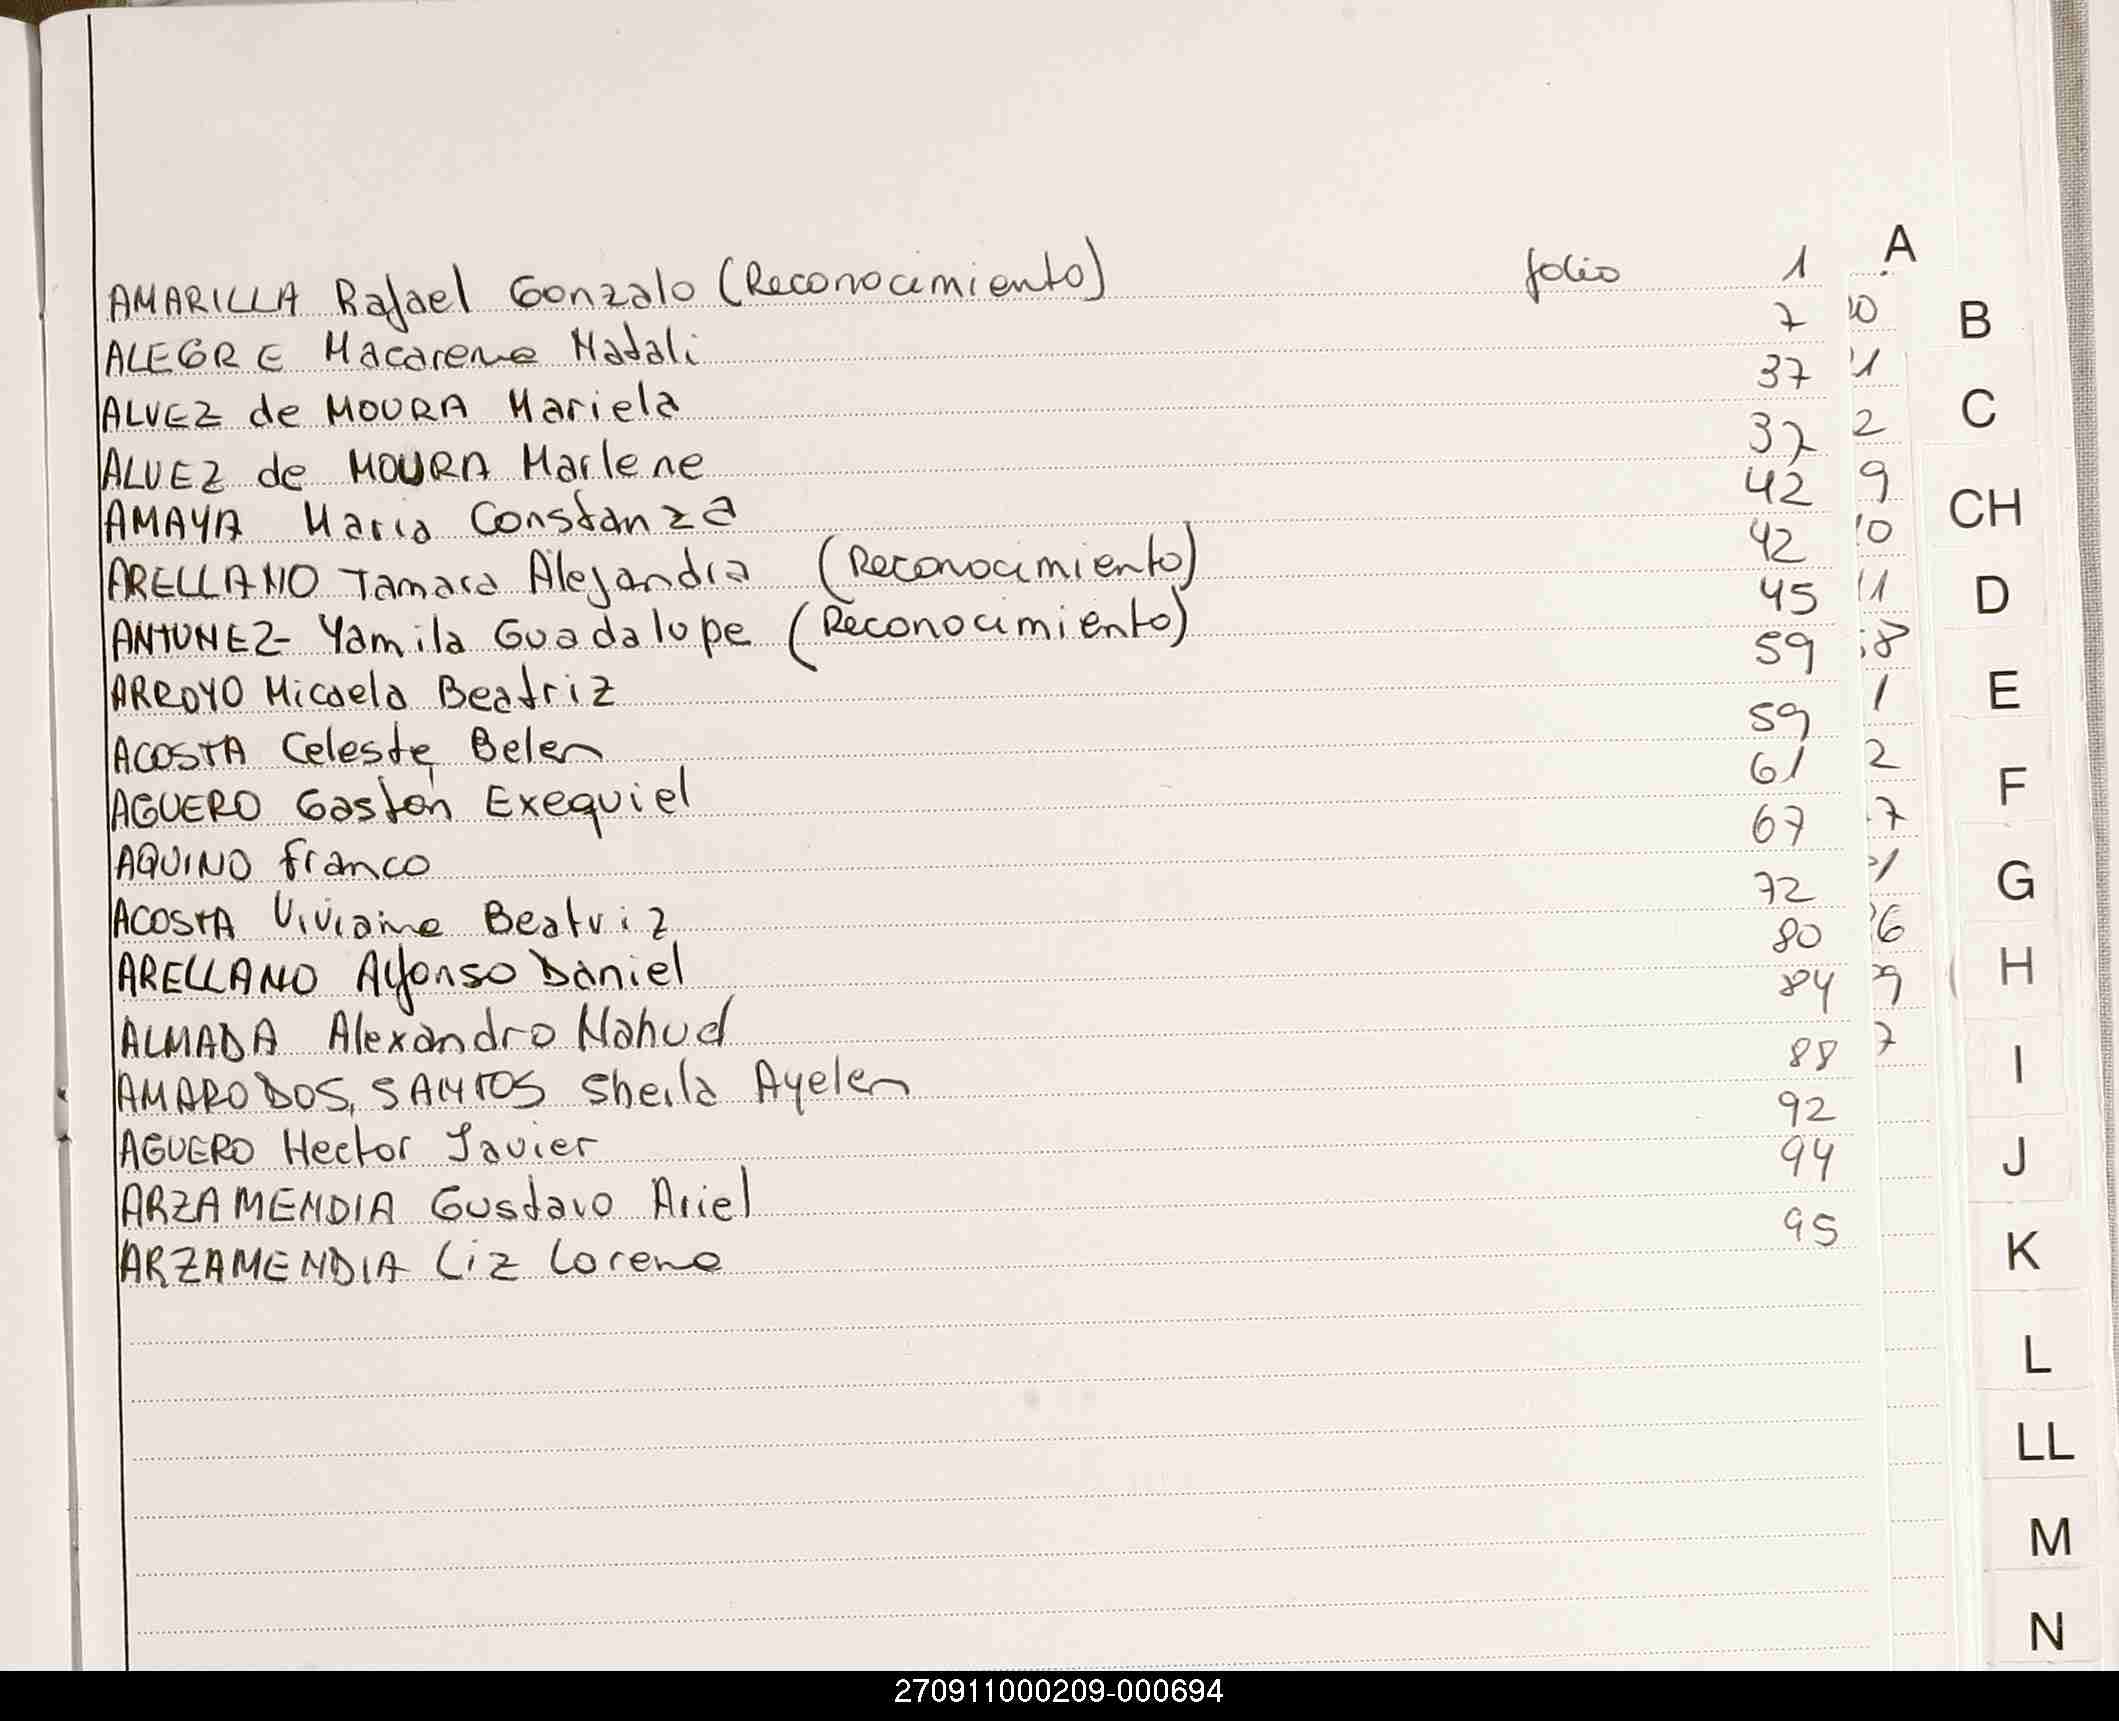 AMARILLA Rafael Gonzalo (Reconocimiento) folio 1
ALEGRE Macarena Natali 7
ALVEZ de MOURA Mariela 37
ALVEZ de MOURA Marlene 37
AMAYA Maria Constanza 42
ARELLANO Tamara Alejandra (Reconocimiento) 42
ANTUNEZ Yamila Guadalupe (Reconocimiento) 45
ARROYO Micaela Beatriz 59
ACOSTA Celeste Belen 59
AGUERO Gastón Exequiel 61
AQUINO Franco 67
ACOSTA Viviana Beatriz 72
ARELLANO Alfonso Daniel 80
ALMADA Alexandro Nahuel 84
AMARO DOS SANTOS Sheila Ayelen 88
AGUERO Hector Javier 92
ARZAMENDIA Gustavo Ariel 94
ARZAMENDIA Liz Lorena 95
A
B
C
CH
D
E
F
G
H
I
J
K
L
LL
M
N
270911000209-000694